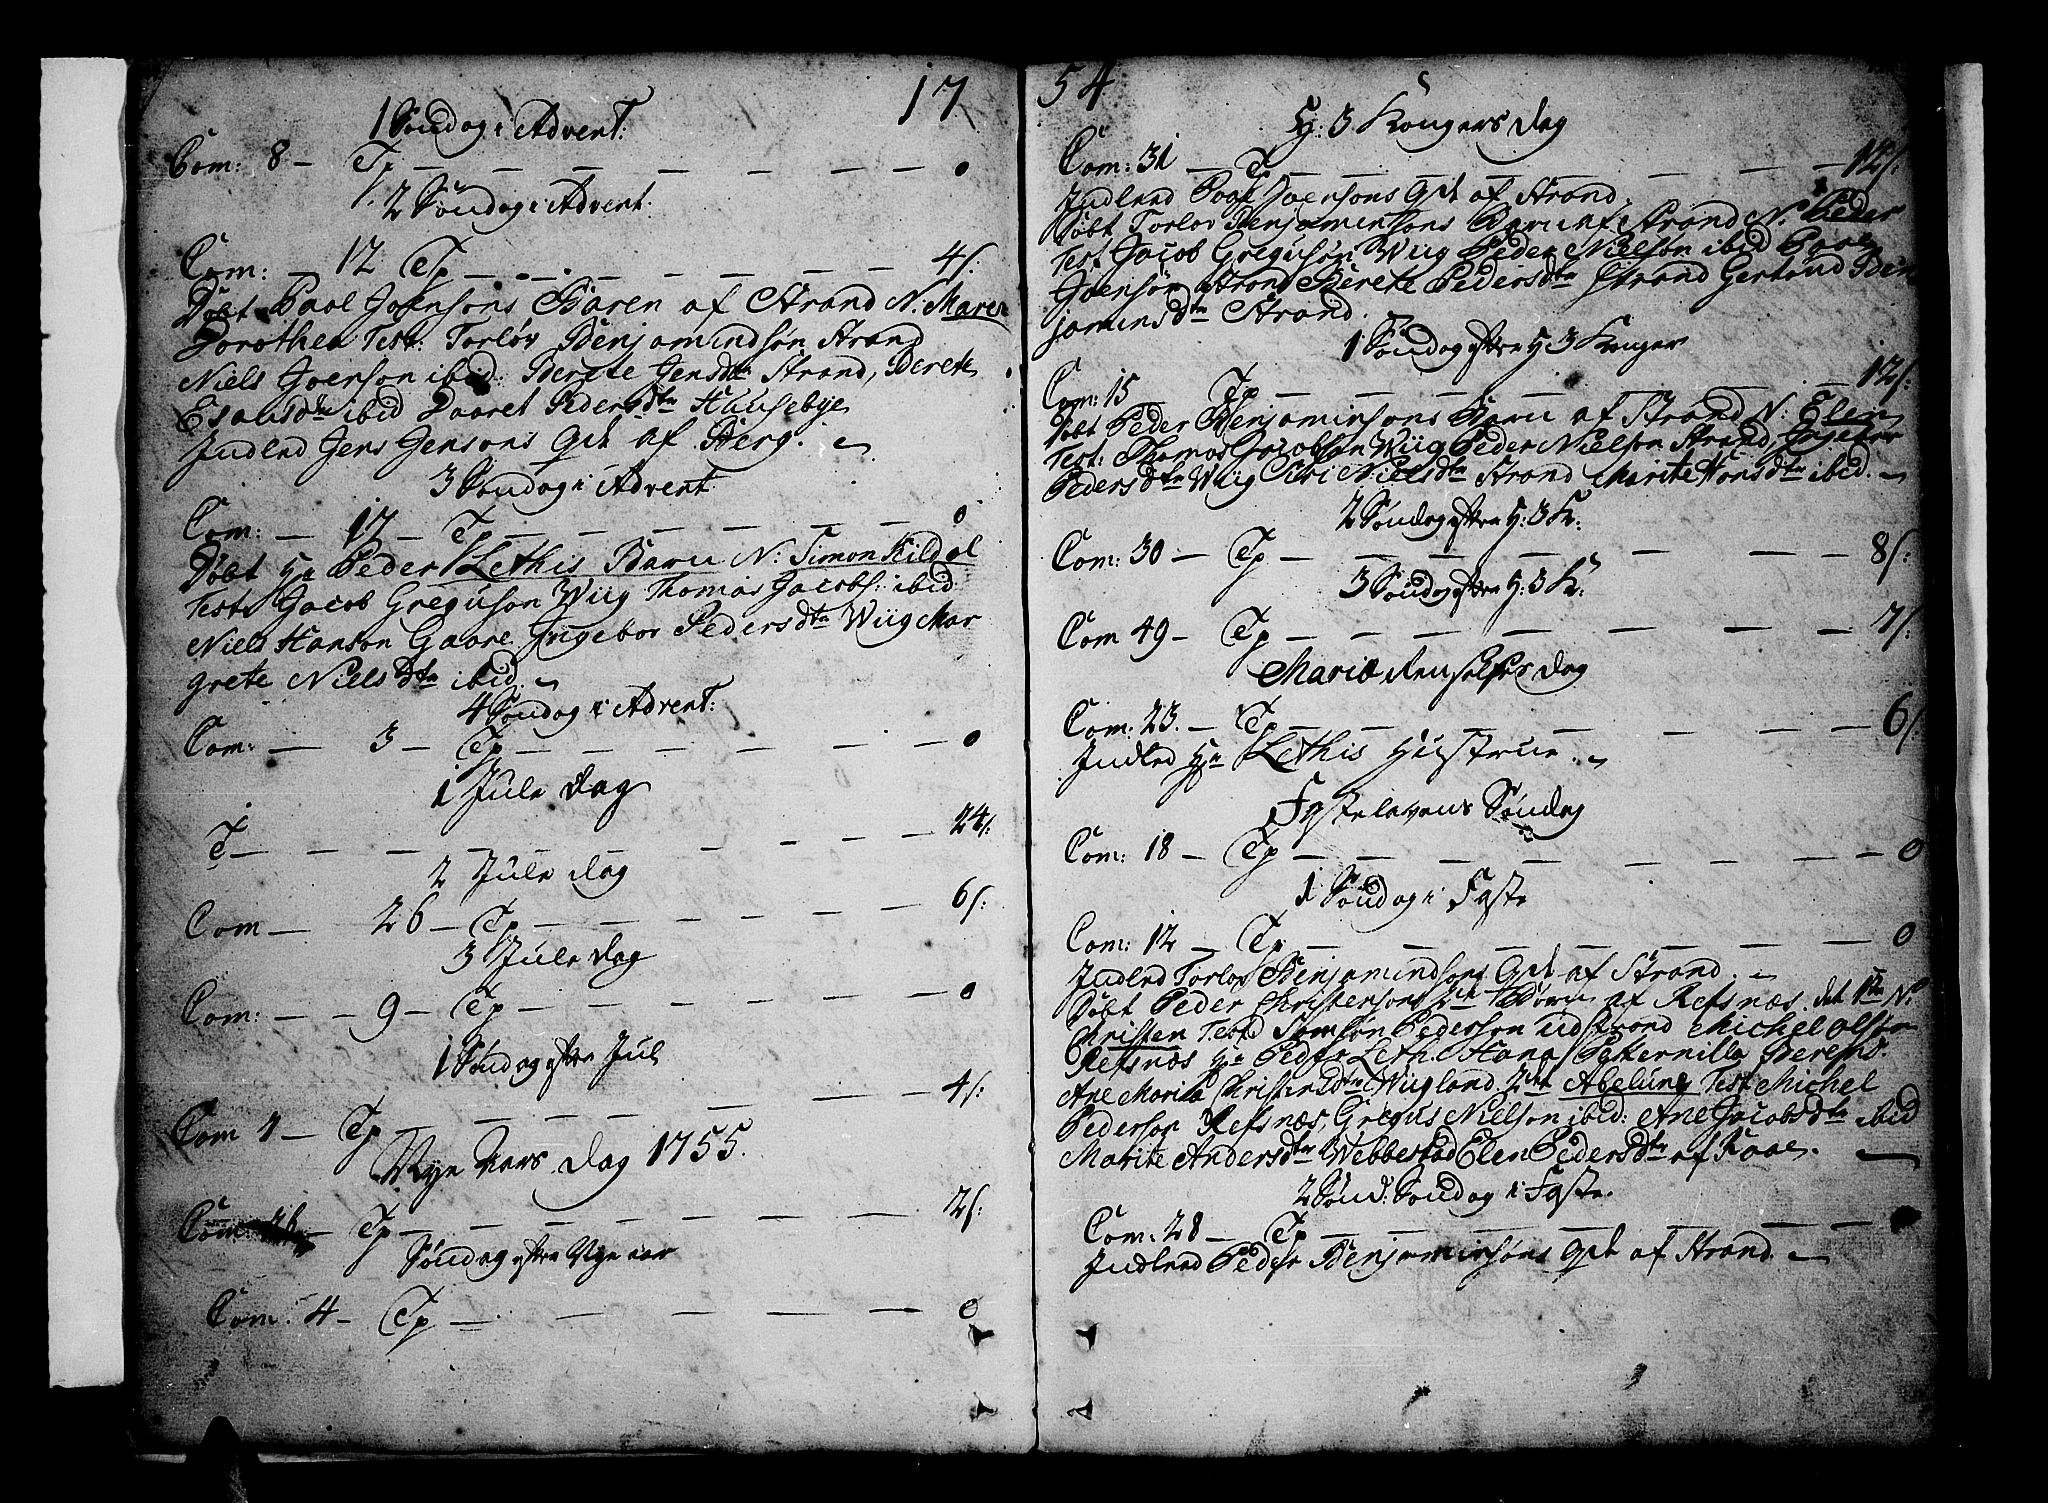 17
1 Søndag i Advent:
Com: 8 — Tp — — — — — — — 0
2 Søndag i Advent.
Com: — 12 Tp — — — — — — — 4/:
Døbt Paal Joensøns Baren af Strand N. Maren
Dorothea Test: Torlov Benjamindsøn Strand
Niels Joensøn ibid: Berete Jensdtr Strand, Berete
Esausdtr ibid Daaret Pedersdtr Hausebye
Indled Jens Jensøns Qvt af Berg.
3 Søndag i Advent
Com: — 17 — Tp — — — — — — 0
Døbt Hr Peder Lethis Barn N: Simon Kildal
Test: Jacob Gregusøn Wiig Thomas Jacobs: ibid
Niels Hansøn Gaare Ingebor Pedersdtr Wiig Mar
grete Nielsdtr ibid.
4 Søndag i Advent:
Com: — 3 — Tp — — — — — — 0
1 Jule Dag
T — — — — — — — — 24/:
2 Jule dag
Com — 26 — Tp — — — — — — 6/:
3 Jule dag
Com: — — 9 — Tp — — — — — — 0
1 Søndag efter Jul
Com 7 — Tp — — — — — — — 4/:
Nye Aars Dag 1755.
Com: — Tp — — — — — — — 2/:
Søndag efter Nye aar
Com: 4 — Tp — — — — — — 0
54
H: 3 Kongers Dag
Com: 31 — Tp — — — — — — — 12/:
Indled Paal Joensøns Qvt af Strand.
Døbt Torlov Benjaminsøns Barn af Strand N. Peder
Test Jacob Gregusøn Wiig Peder Nielsøn ibid Paal
Joensøn Strand Berete Pedersdtr Strand Gertrud Ben
jaminsdtr Strand.
1 Søndag efter H 3 Konger
Com: 15 — Tp — — — — — — — 12/:
Døbt Peder Benjaminsøns Barn af Strand N: Elen
Test: Thomas Jacobsøn Wiig Peder Nielsøn Strand, Ingebor
Pedersdtr Wiig Siri Nielsdtr Strand Marite Hansdtr ibid.
2 Søndag efter H: 3 K:
Com: 30 — Tp — — — — — — — 8/:
3 Søndag efter H: 3 K:
Com 49 — Tp — — — — — — — 7/:
Mariæ Renselses Dag
Com: 23. — Tp — — — — — — — 6/:
Indled Hr Lethis Hustrue.
Fastelavens Søndag
Com: 18 — Tp — — — — — — — 0
1 Søndag i Faste
Com: 12 — Tp — — — — — — — 0
Indled Torlov Benjamindsøns Qvt af Strand.
Døbt Peder Christensøns Børn af Refsnæs det 1te N:
Christen Test: Samsøn Pedersøn Udstrand Michel Olsøn
Refsnæs Hr Peder Leth. Hans Petternilla Berends.
Ane Marita Christensdtr Wiigland 2det Abelune Test Michel
Pedersøn Refsnæs, Gregus Nielsøn ibid: Ane Jacobsdtr ibid
Marite Andersdtr Webbestad Elen Pedersdtr af Raae.
2 Sønd: Søndag i Faste.
Com: 28 — Tp — — — — — — —
Indled Peder Benjaminsøns Qvt af Strand.